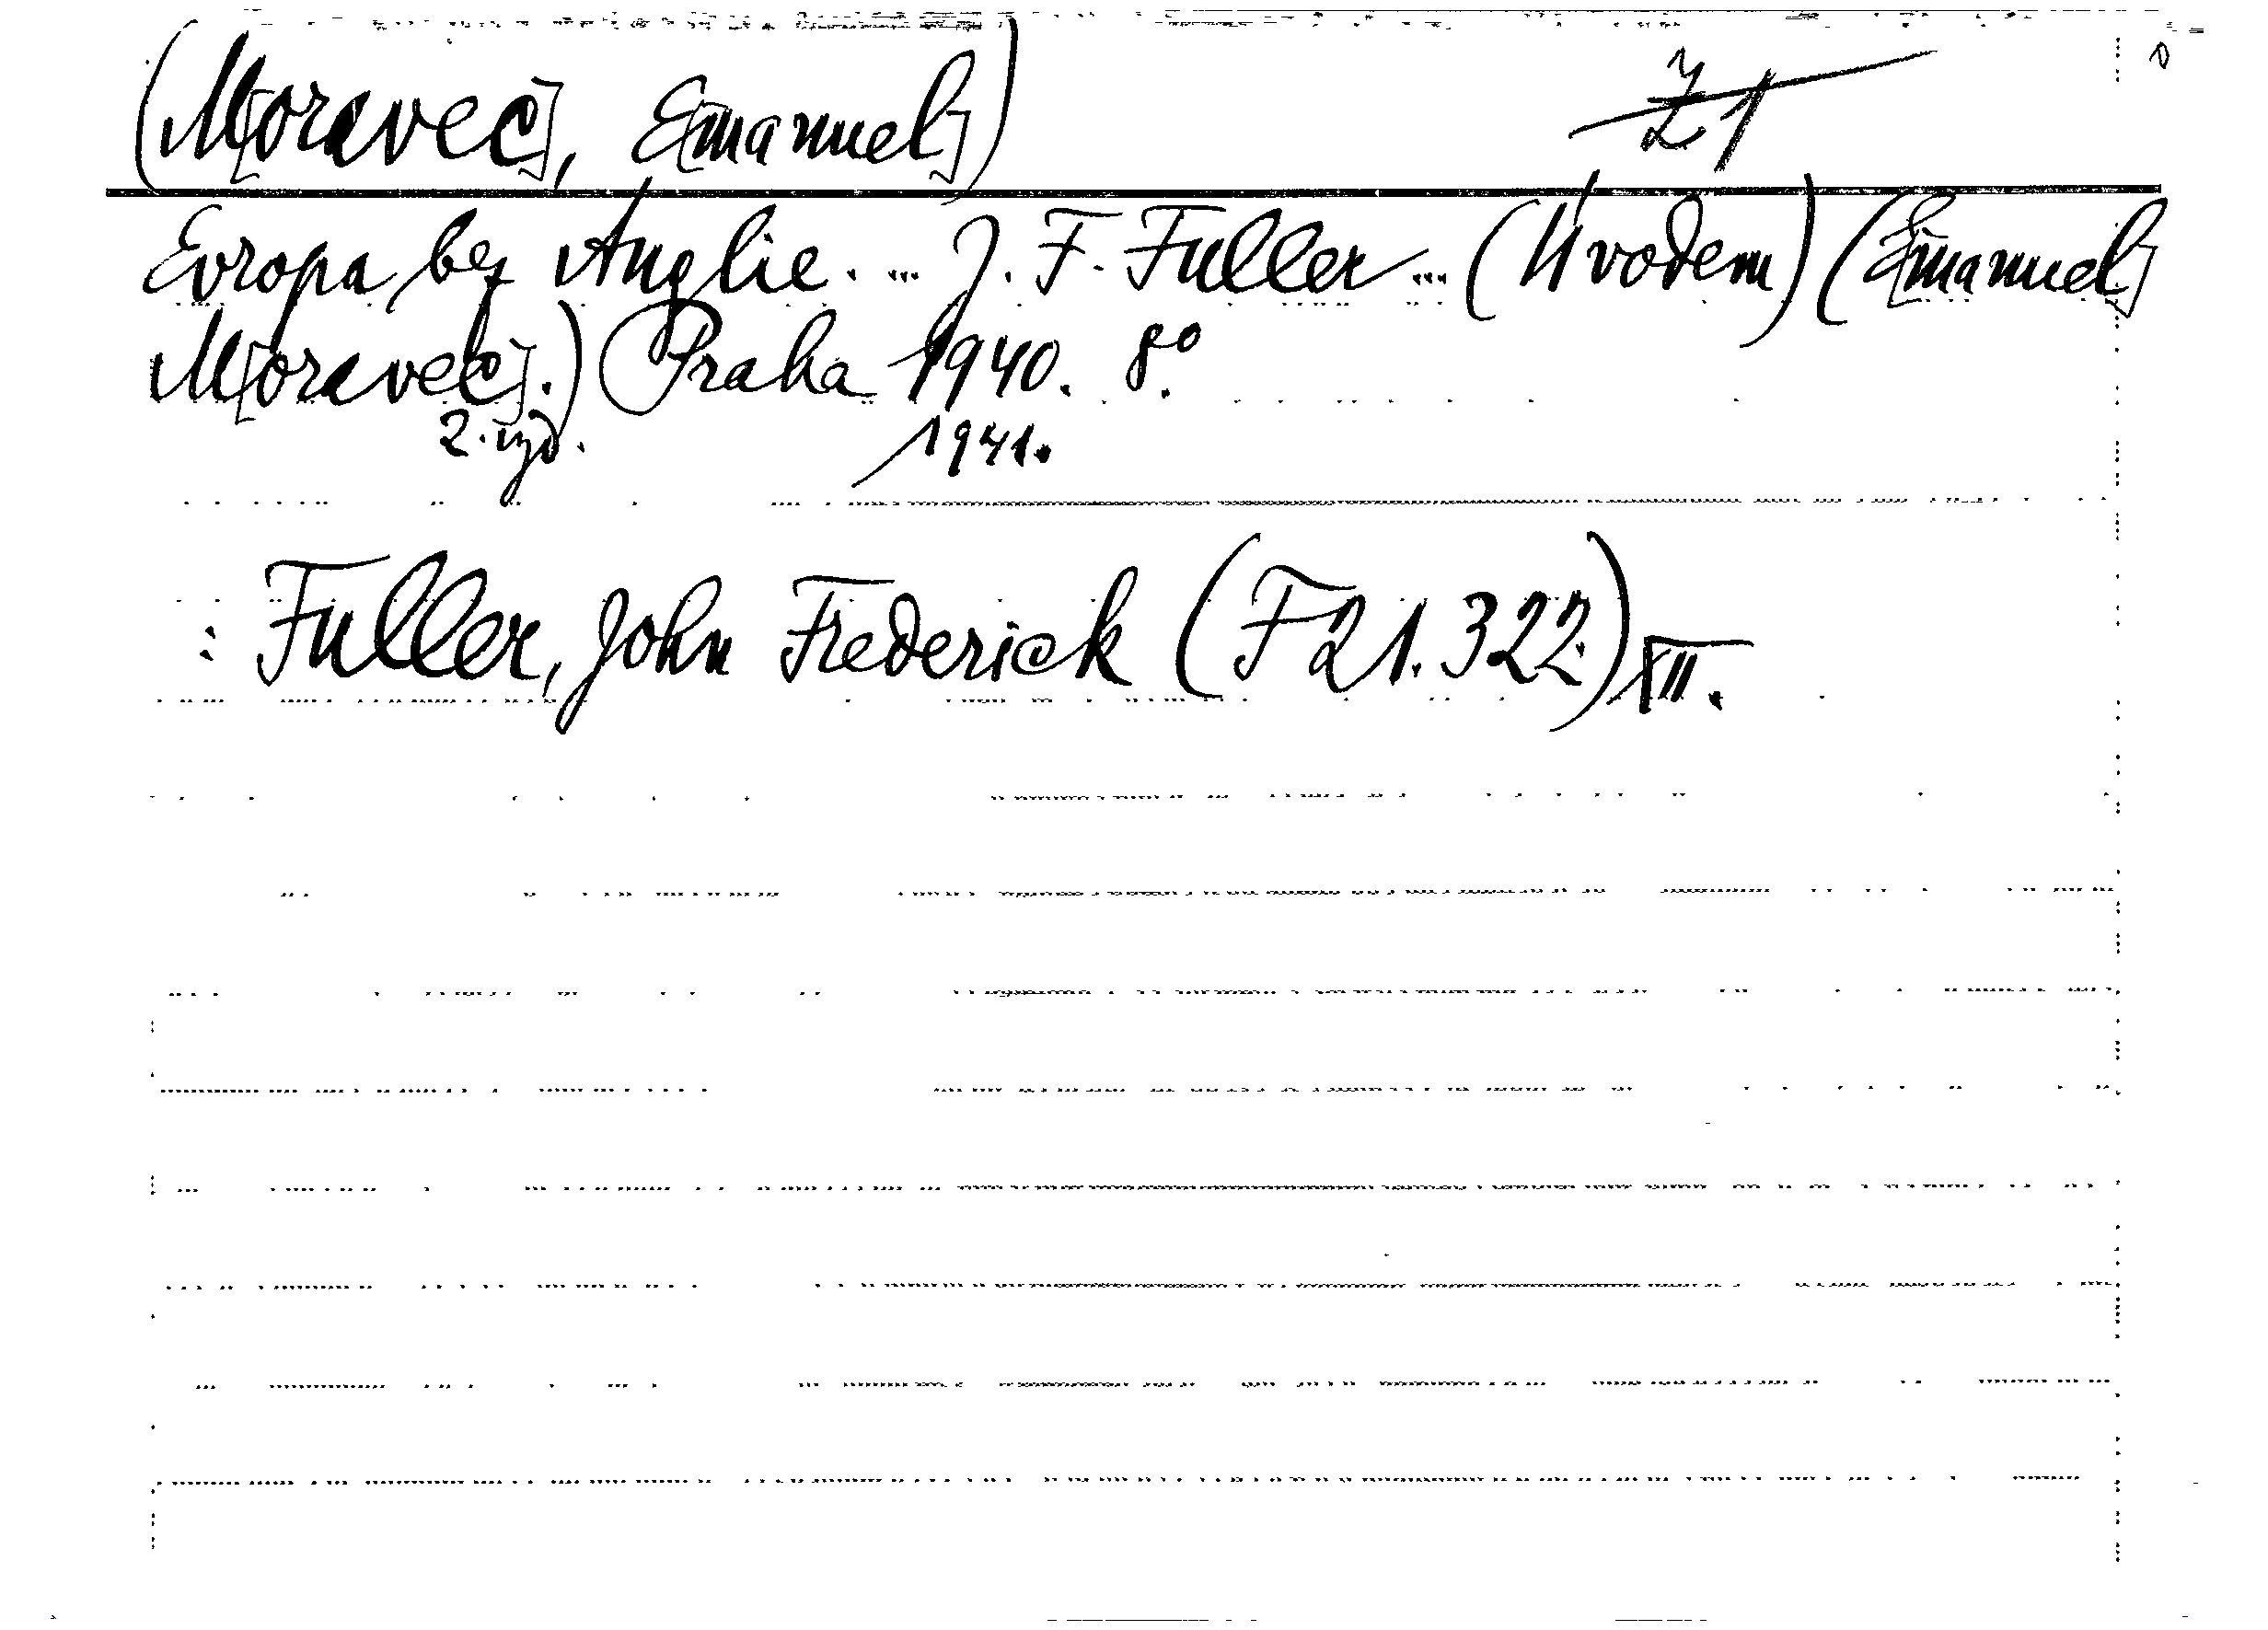 (M[oravec], E[manuel]) Ž1
Evropa bez Anglie. ... J. F. Fuller ... (Úvodem) (E[manuel]
M[oravec].) Praha 1940. 8°.
2. vyd. 1941.
: Fuller, John Frederick (F 21.322) XII.